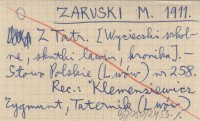 ZARUSKI M. 1911.
Z Tatr. [Wycieczki szkol-
ne, skutki lawin, kronika]. –
Słowo Polskie (Lwów) nr 258.
Rec.: Klemensiewicz
Zygmunt, Taternik (Lwów)